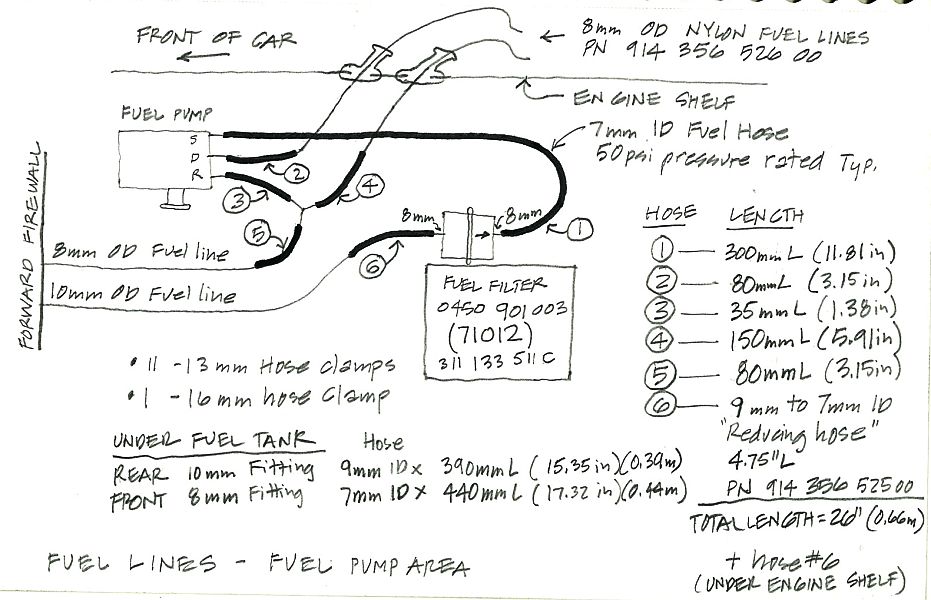 FRONT OF CAR
8mm OD NYLON FUEL LINES
PN 914 356 526 00
ENGINE SHELF
FUEL PUMP
S
D
R
7mm ID Fuel Hose
50psi pressure rated Typ.
FORWARD FIREWALL
2
3
4
5
6
1
8mm
8mm
8mm OD Fuel line
10mm OD Fuel line
FUEL FILTER
0450 901 003
(71012)
311 133 511 C
HOSE LENGTH
1 — 300mm L (11.81in)
2 — 80mmL (3.15in)
3 — 35mmL (1.38in)
4 — 150mmL (5.91in)
5 — 80mmL (3.15in)
6 — 9mm to 7mm ID
"Reducing hose"
4.75"L
PN 914 356 525 00
TOTAL LENGTH = 26" (0.66m)
+ hose #6
(UNDER ENGINE SHELF)
• 11 - 13mm Hose clamps
• 1 - 16mm hose clamp
UNDER FUEL TANK Hose
REAR 10mm Fitting 9mm ID x 390mmL (15.35in)(0.39m)
FRONT 8mm Fitting 7mm ID x 440mmL (17.32in)(0.44m)
FUEL LINES - FUEL PUMP AREA